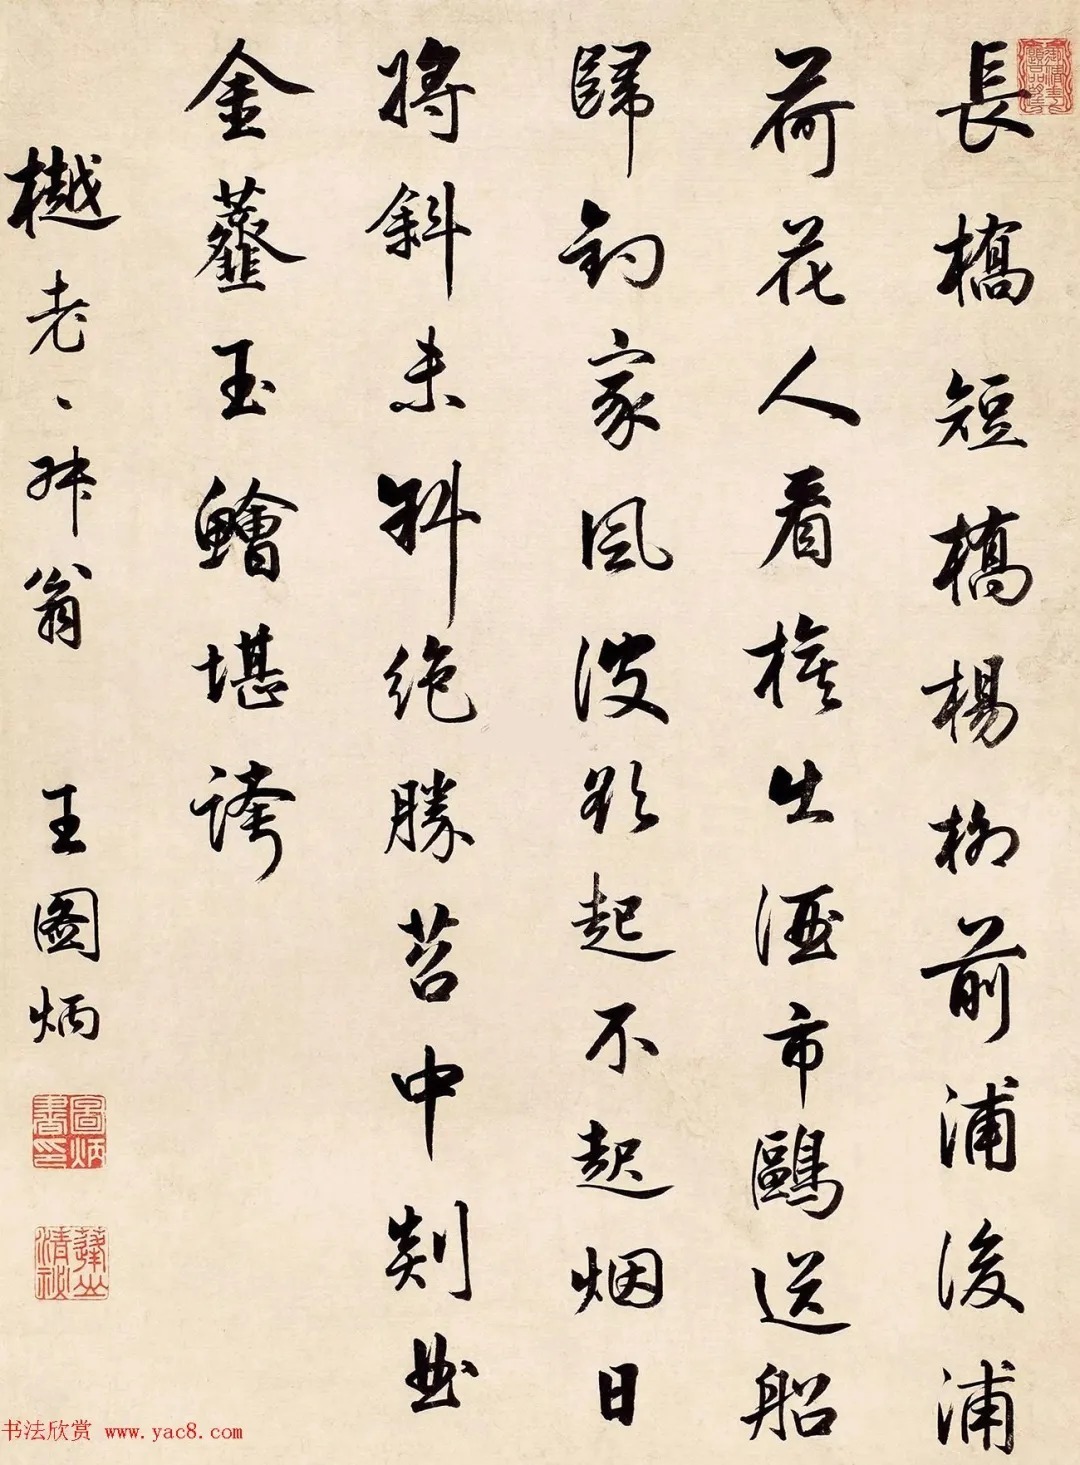 長橋短橋楊柳前浦後浦
荷花人看旗出酒市鷗送船
歸釣家風波欲起不起烟日
將斜未斜絶勝苕中剡曲
金虀玉鱠堪誇
樾老 翁 王圖炳
圖炳書印
蓬山清祕
书法欣赏 www.yac8.com